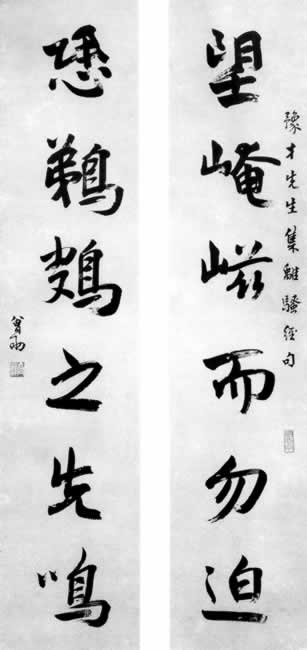 望崦嵫而勿迫
豫才先生集離騷經句
恐鵜鴂之先鳴